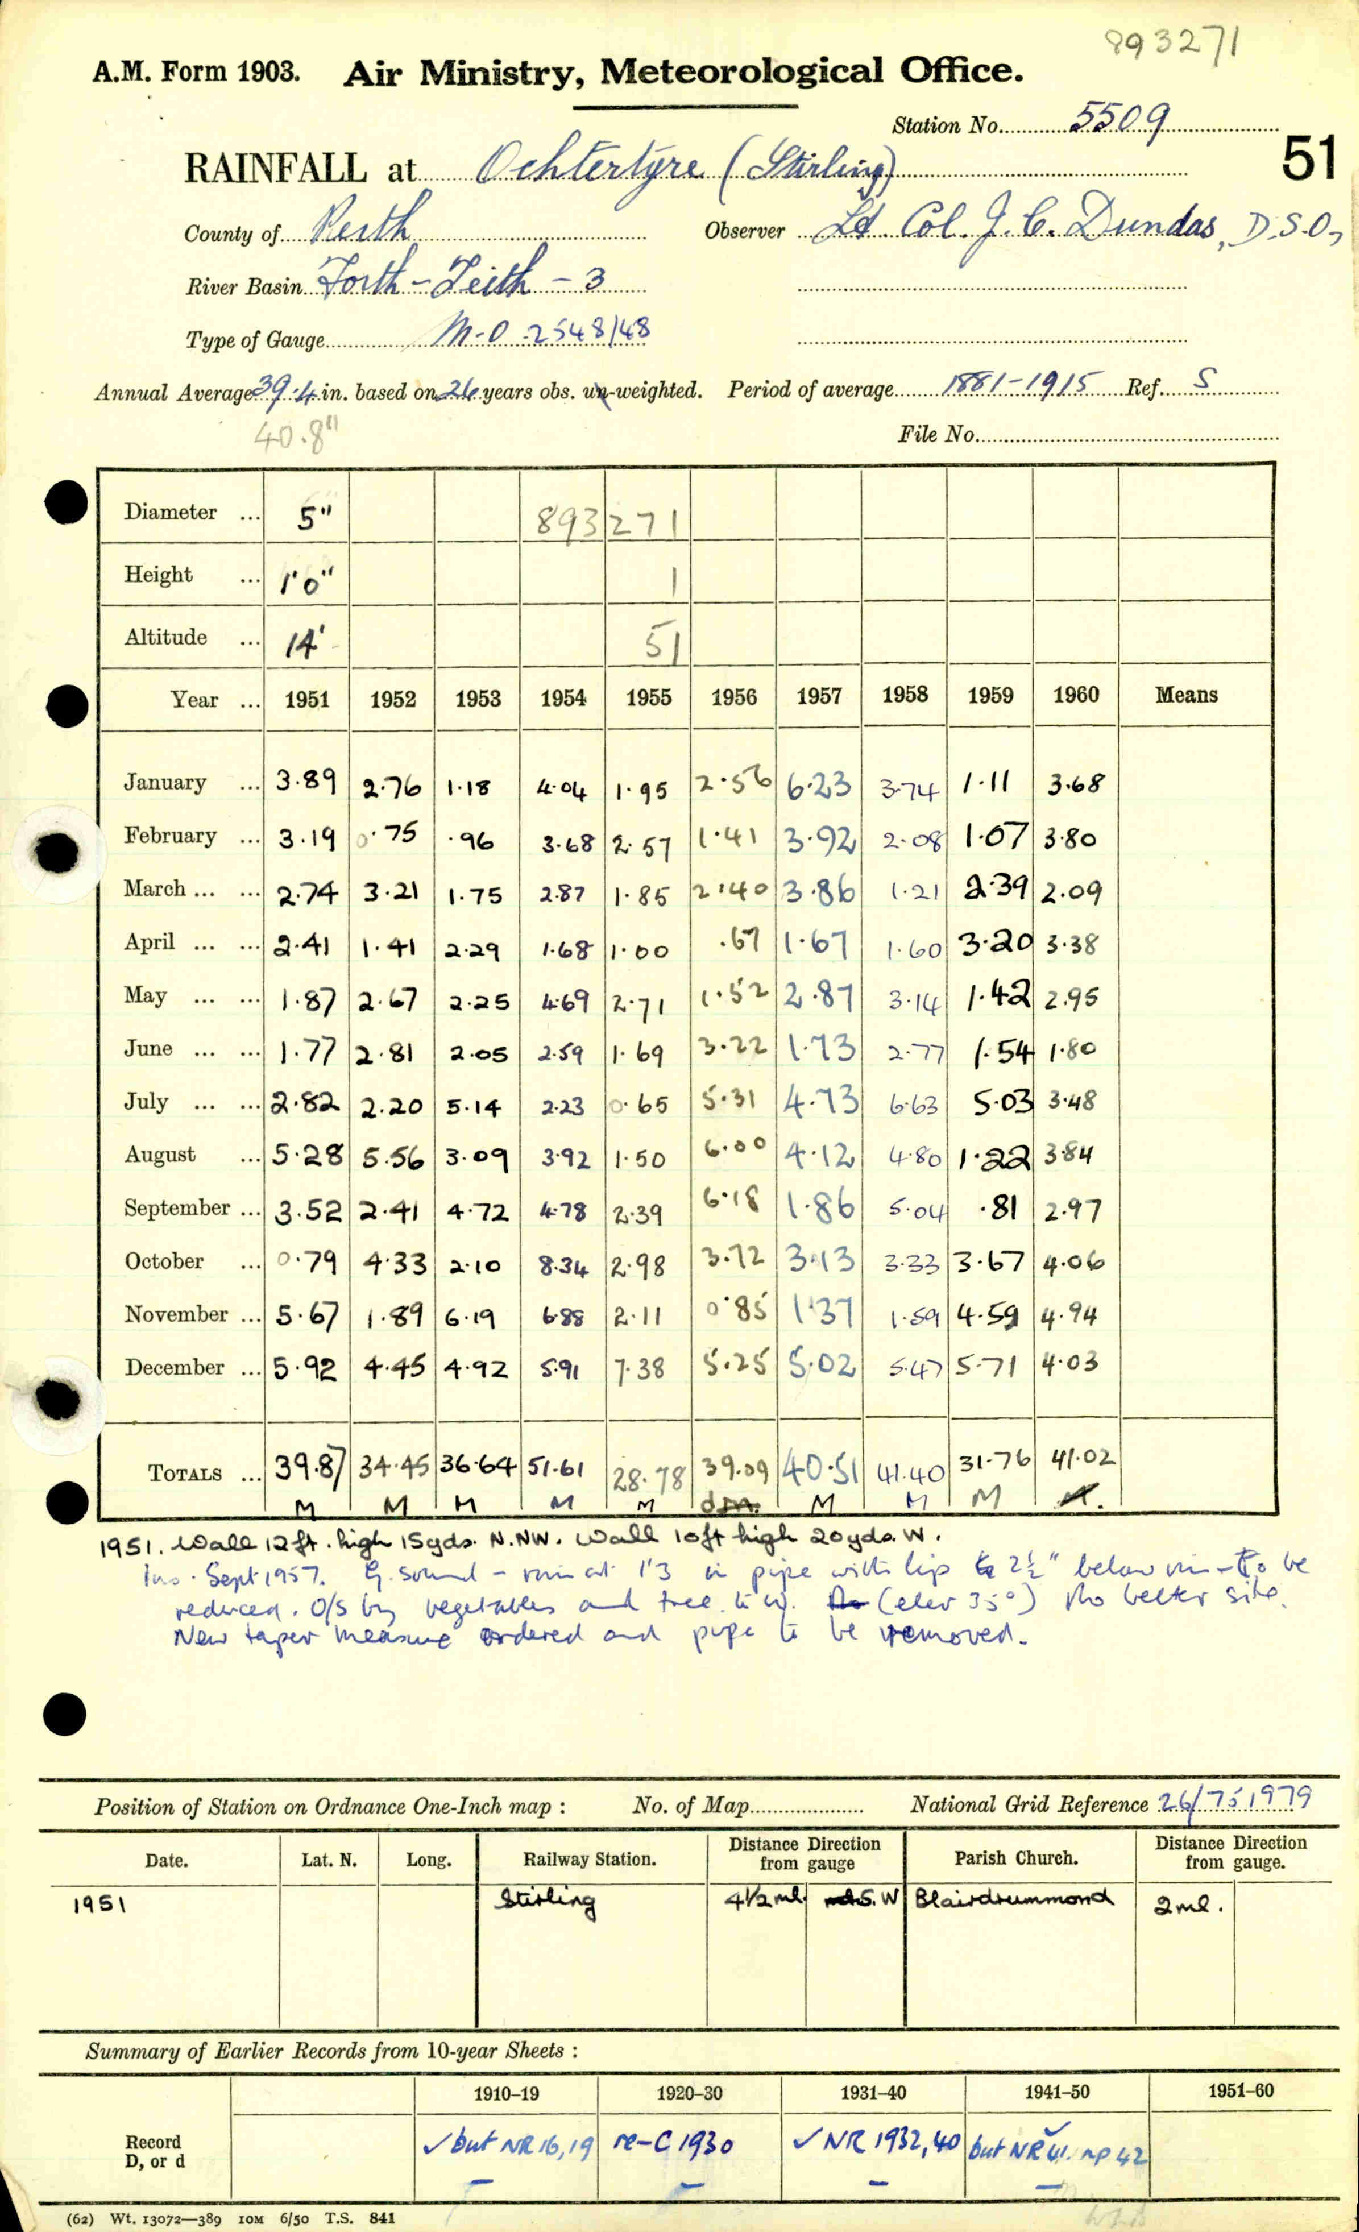 893271
A.M. Form 1903. Air Ministry, Meteorological Office.
Station No. 5509
51
RAINFALL at Ochtertyre (Stirling)
County of Perth Observer Lt Col. J. C. Dundas, D.S.O.,
River Basin Forth - Teith - 3
Type of Gauge M.O. 2548/48
Annual Average 39.4 in. based on 26 years obs. un-weighted. Period of average 1881-1915 Ref. S
40.8"
File No.
Diameter ... 5" 893271
Height ... 1'0" 1
Altitude ... 14' 51
Year ... 1951 1952 1953 1954 1955 1956 1957 1958 1959 1960 Means
January ... 3.89 2.76 1.18 4.04 1.95 2.56 6.23 3.74 1.11 3.68
February ... 3.19 0.75 .96 3.68 2.57 1.41 3.92 2.08 1.07 3.80
March ... ... 2.74 3.21 1.75 2.87 1.85 2.40 3.86 1.21 2.39 2.09
April ... ... 2.41 1.41 2.29 1.68 1.00 .67 1.67 1.60 3.20 3.38
May ... ... 1.87 2.67 2.25 4.69 2.71 1.52 2.87 3.14 1.42 2.95
June ... ... 1.77 2.81 2.05 2.59 1.69 3.22 1.73 2.77 1.54 1.80
July ... ... 2.82 2.20 5.14 2.23 0.65 5.31 4.73 6.63 5.03 3.48
August ... 5.28 5.56 3.09 3.92 1.50 6.00 4.12 4.80 1.22 3.84
September ... 3.52 2.41 4.72 4.78 2.39 6.18 1.86 5.04 .81 2.97
October ... 0.79 4.33 2.10 8.34 2.98 3.72 3.13 3.33 3.67 4.06
November ... 5.67 1.89 6.19 6.88 2.11 0.85 1.37 1.59 4.59 4.94
December ... 5.92 4.45 4.92 5.91 7.38 5.25 5.02 5.47 5.71 4.03
TOTALS ... 39.87 34.45 36.64 51.61 28.78 39.09 40.51 41.40 31.76 41.02
M M M M M M M M M
1951. Wall 12ft. high 15yds. N.NW. Wall 10ft high 20yds. W.
Ins. Sept 1957. G. sound - rim at 1'3 in pipe with lip 2½" below rim - To be
reduced. O/S by vegetables and tree to W. (elev 35°) No better site.
New taper measure ordered and pipe to be removed.
Position of Station on Ordnance One-Inch map : No. of Map National Grid Reference 26/751979
Date. Lat. N. Long. Railway Station. Distance Direction from gauge Parish Church. Distance Direction from gauge.
1951 Stirling 4½ml. S.W Blairdrummond 2ml.
Summary of Earlier Records from 10-year Sheets :
1910-19 1920-30 1931-40 1941-50 1951-60
Record D, or d ✓ but NR 16, 19 re-C 1930 ✓ NR 1932, 40 ✓ but NR 41. np 42
(62) Wt. 13072—389 10M 6/50 T.S. 841